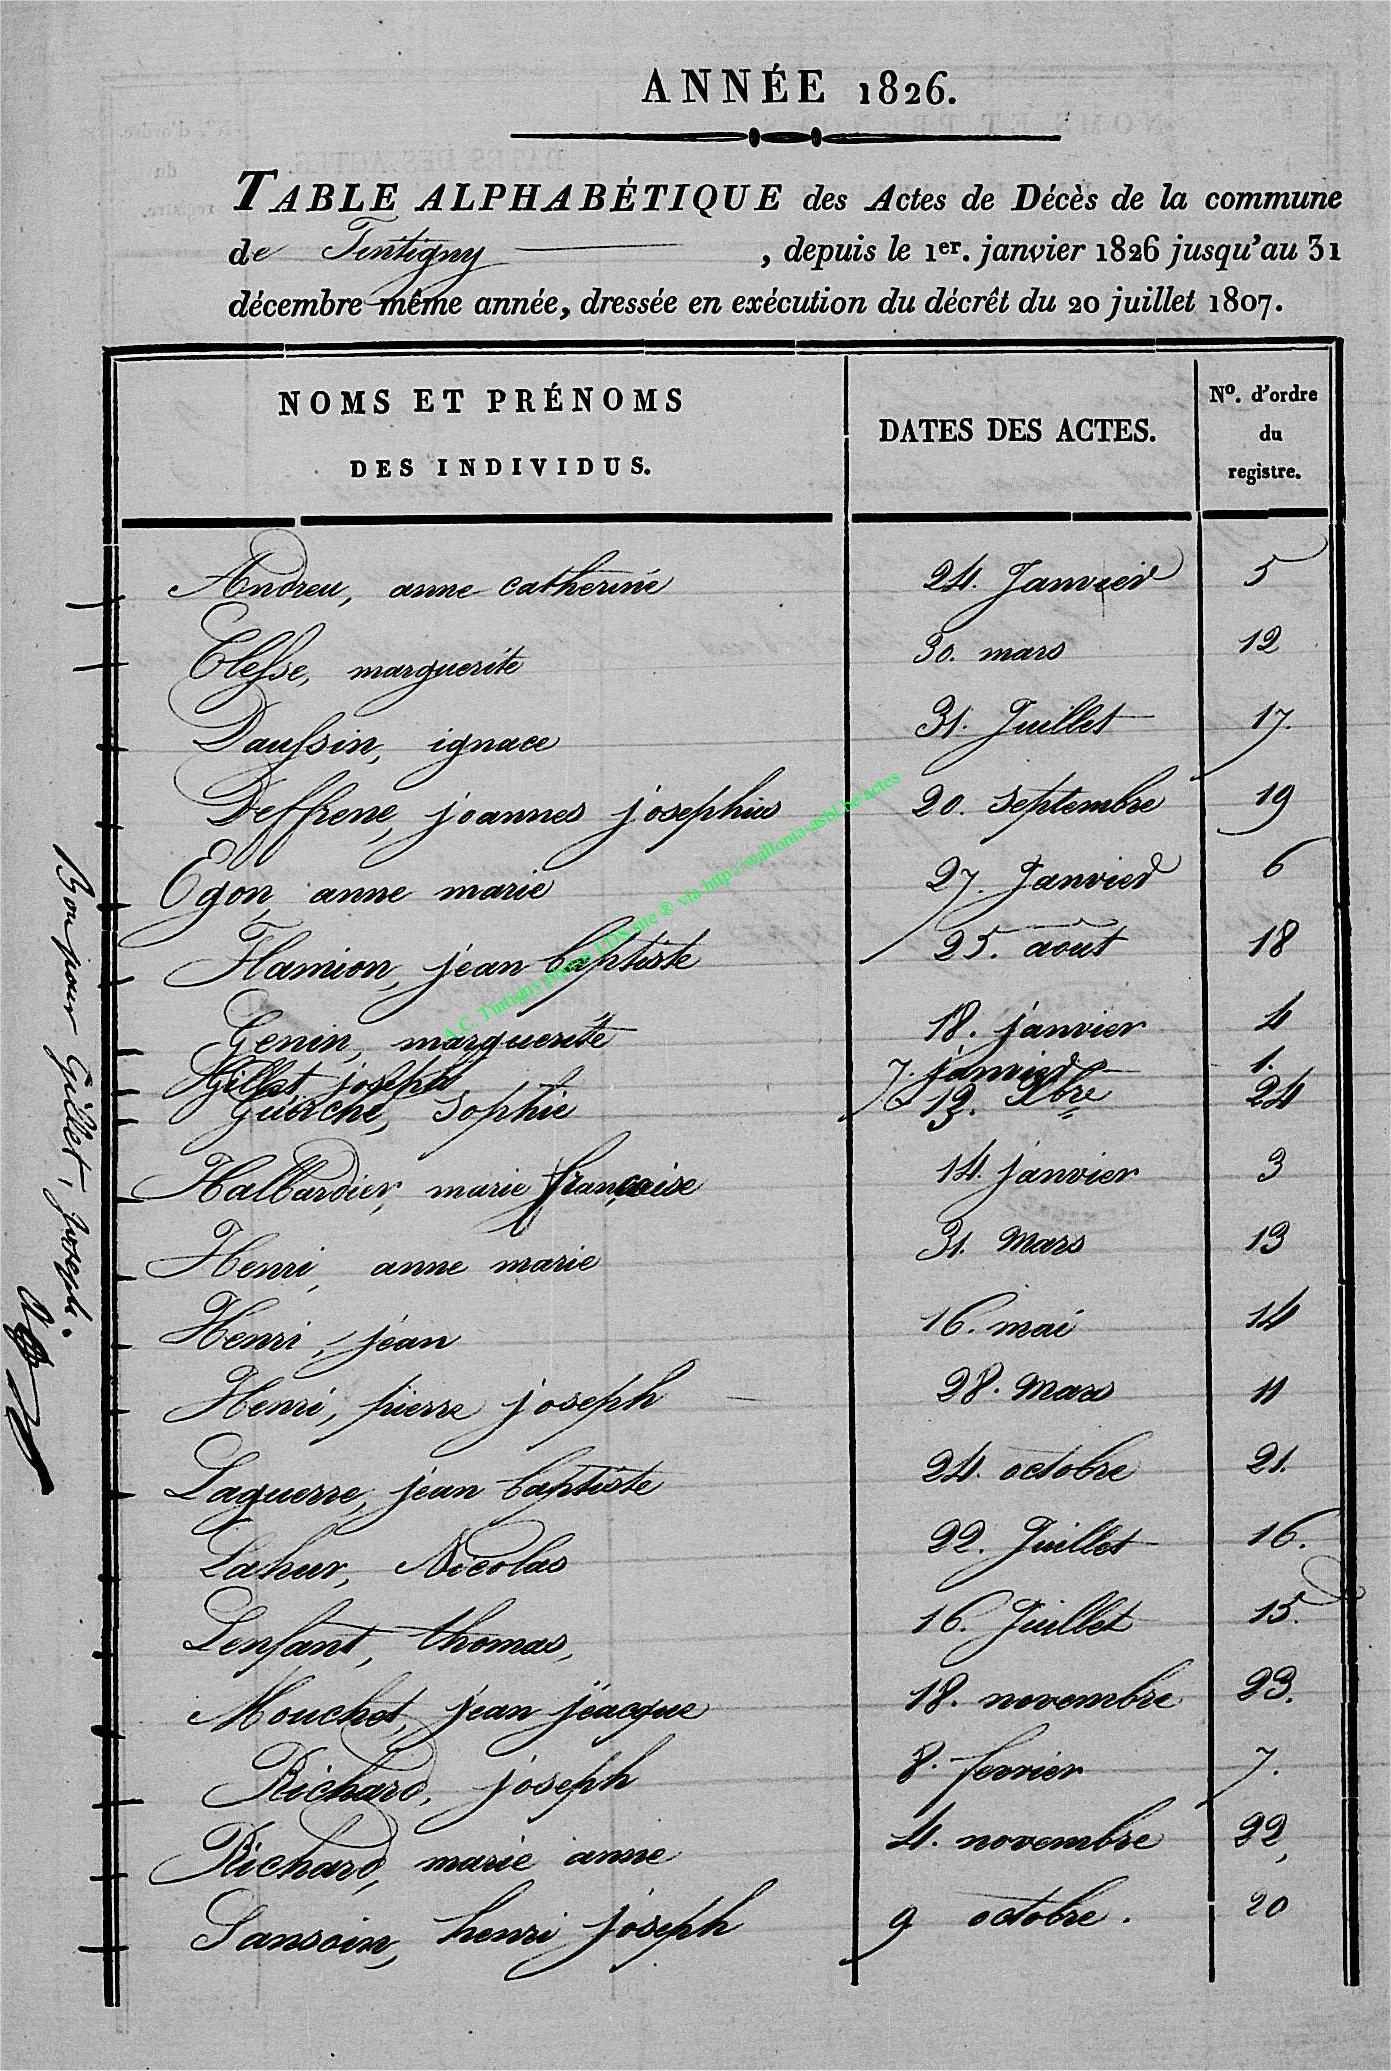 ANNÉE 1826.
TABLE ALPHABÉTIQUE des Actes de Décès de la commune
de Tintigny , depuis le 1er. janvier 1826 jusqu'au 31
décembre même année, dressée en exécution du décrêt du 20 juillet 1807.
NOMS ET PRÉNOMS
DES INDIVIDUS.
DATES DES ACTES.
No. d'ordre
du
registre.
Andreu, anne catherine 24. Janvier 5
Clesse, marguerite 30. mars 12
Daussin, ignace 31. Juillet 17.
Deffrene, joannes josephus 20. septembre 19
Egon, anne marie 27. Janvier 6
Hamion, jean baptiste 25. août 18
Genin, marguerite 18. janvier 4
Gillet joseph 7. janvier 1.
Guirche, sophie 12. Xbre 24
Hallbardier, marie françoise 14. janvier 3
Henri, anne marie 31. Mars 13
Henri, jean 16. mai 14
Henri, pierre joseph 28. Mars 11
Laguerre, jean baptiste 24. octobre 21.
Lahur, Nicolas 22. Juillet 16.
Lenfant, thomas, 16. Juillet 15.
Mouchet, jean jeacque 18. novembre 23.
Richard, joseph 8. fevrier 7.
Richard, marie anne 4. novembre 22,
Sansoin, henri joseph 9 octobre. 20
Bon pour Gillet, Joseph.
A.C. Tintigny photos LDS site ® via http://walloma-asbl.be/actes